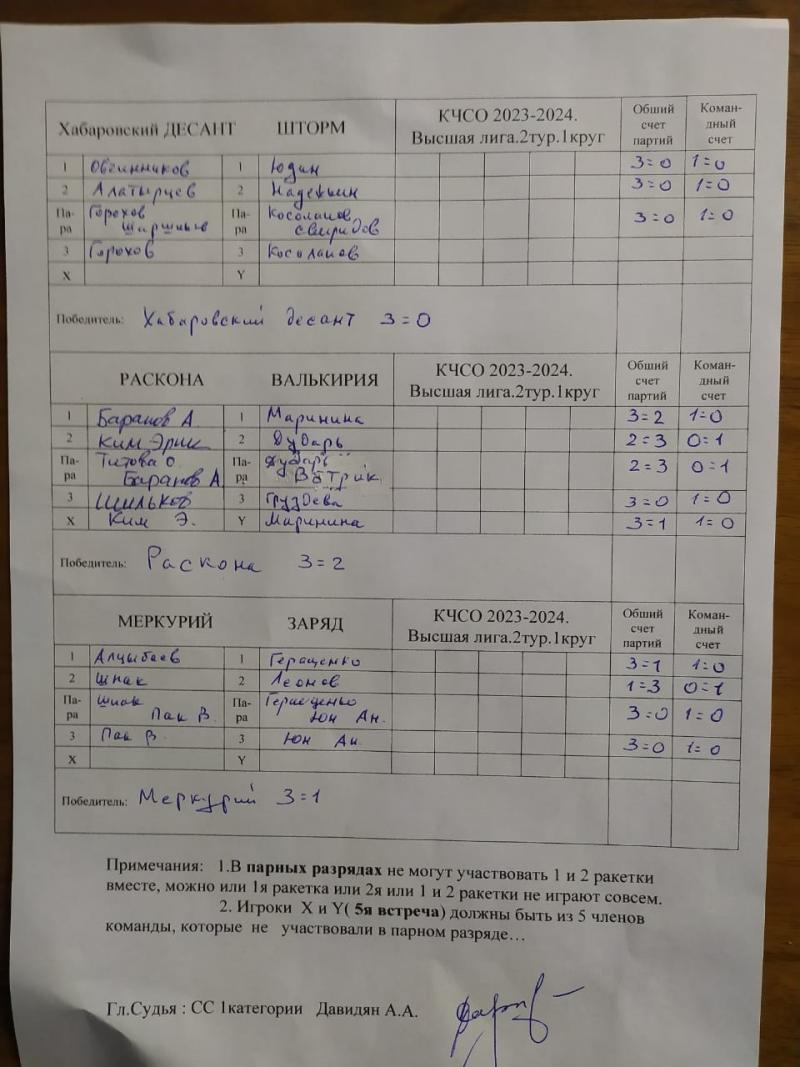 Хабаровский ДЕСАНТ ШТОРМ КЧСО 2023-2024. Высшая лига.2тур.1круг Обший счет партий Коман-дный счет
1 Овчинников 1 Юдин 3=0 1=0
2 Алатырцев 2 Надежкин 3=0 1=0
Па-ра Горохов Па-ра Косолапов 3=0 1=0
Свиридов
3 Горохов 3 Косолапов
X Y
Победитель: Хабаровский десант 3=0
РАСКОНА ВАЛЬКИРИЯ КЧСО 2023-2024. Высшая лига.2тур.1круг Обший счет партий Коман-дный счет
1 Баранов А 1 Маринина 3=2 1=0
2 Ким Эрик 2 Дударь 2=3 0=1
Па-ра Титова О Па-ра Дударь 2=3 0=1
Баранов А Вятрик
3 Шильков 3 Груздева 3=0 1=0
X Ким Э. Y Маринина 3=1 1=0
Победитель: Раскона 3=2
МЕРКУРИЙ ЗАРЯД КЧСО 2023-2024. Высшая лига.2тур.1круг Обший счет партий Коман-дный счет
1 Алцыбеев 1 Геращенко 3=1 1=0
2 Шпак 2 Леонов 1=3 0=1
Па-ра Шпак Па-ра Геращенко 3=0 1=0
Пак В. Юн Ан.
3 Пак В. 3 Юн Ан. 3=0 1=0
X Y
Победитель: Меркурий 3=1
Примечания: 1.В парных разрядах не могут участвовать 1 и 2 ракетки
вместе, можно или 1я ракетка или 2я или 1 и 2 ракетки не играют совсем.
2. Игроки X и Y( 5я встреча) должны быть из 5 членов
команды, которые не участвовали в парном разряде…
Гл.Судья : СС 1категории Давидян А.А.